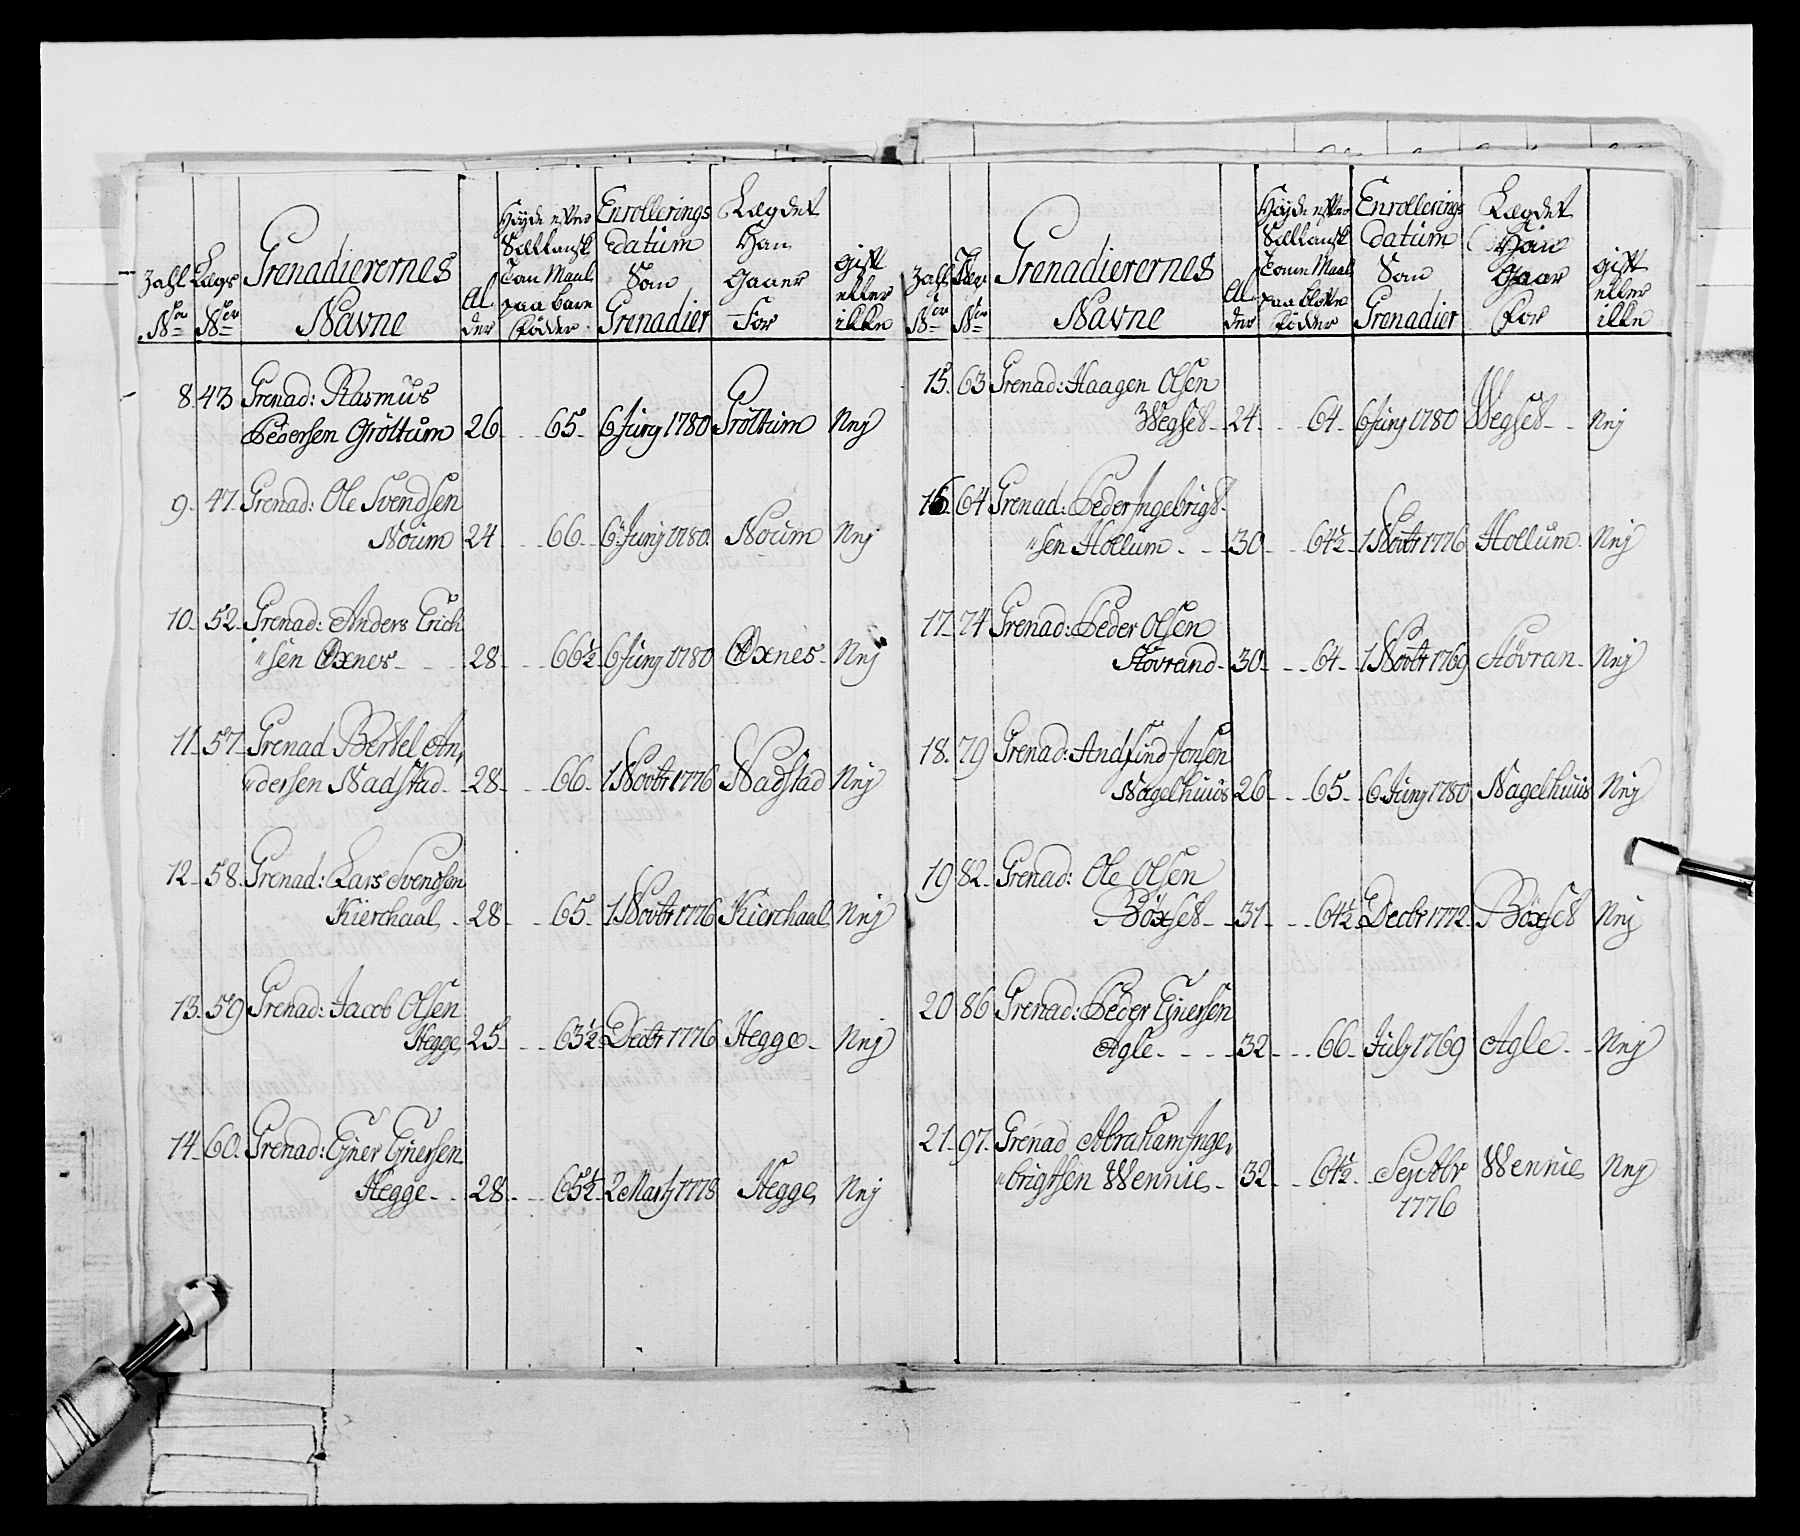 Zahl Nro
Lægs Nro
Grenadierernes Navne
Al der
Høyde efter Sællansk Tom Maal paa bare Fødder
Enrollerings datum Som Grenadier
Lægdet Han Gaaer For
gift eller ikke
8. 43 Grenad: Rasmus
Pedersen Gröttum 26 65 6 Junj 1780 Gröttum Nej
9. 47. Grenad: Ole Svendsen
Noum 24 66 6 Junj 1780. Noum Nej
10. 52. Grenad: Anders Erich
"sen Oxnes 28 66½ 6 Junj 1780 Oxnes Nej
11. 57. Grenad Bertel An,
"dersen Nadstad 28 66 1 Novbr 1776 Nadstad Nej
12. 58. Grenad: Lars Svendsen
Kierchaal 28 65 1 Novbr 1776 Kierchaal Nej
13. 59 Grenad: Jacob Olsen
Hegge 25 63½ Decbr 1776 Hegge Nej
14. 60. Grenad: Ejner Ejnersen
Hegge 28 65½ 2 Martj 1778 Hegge Nej
Zahl Nro
Lægs Nro
Grenadierernes Navne
Al der
Høyde efter Sællansk Tomm Maal paa blotte Fødder
Enrollerings datum Som Grenadier
Lægdet Han Gaar For
gift eller ikke
15. 63 Grenad: Haagen Olsen
Wegset 24 64 6 Junj 1780 Wegset Nej
16. 64 Grenad: Peder Ingebrigt
"sen Hollum 30 64½ 1 Novbr 1776 Hollum Nej
17. 74 Grenad: Peder Olsen
Stövrand 30 64 1 Novbr 1769 Stövran Nej
18. 79 Grenad: Andfind Jonsen
Nagelhuus 26 65 6 Junj 1780 Nagelhuus Nej
19 82. Grenad: Ole Olsen
Böxset 31 64½ Decbr 1772 Böxset Nej
20 86 Grenad: Peder Ejnersen
Agle 32 66 July 1769 Agle Nej
21. 97. Grenad Abraham Inge,
"brigtsen Wennie 32 64½ Septbr Wennie Nej
1776